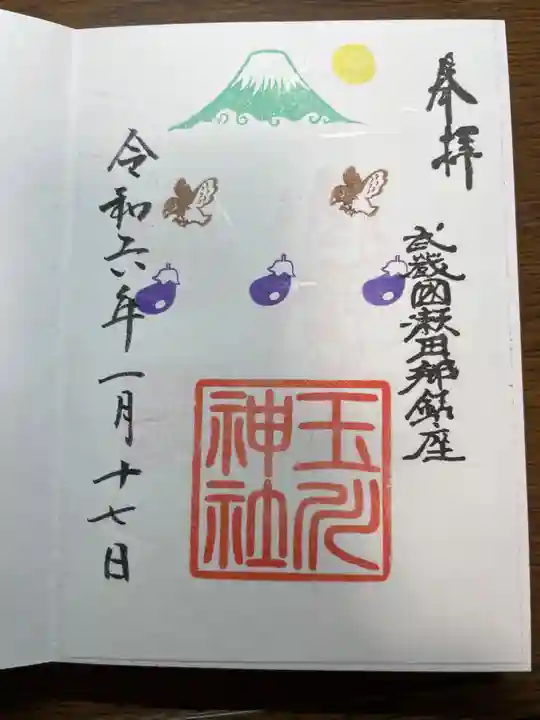 奉拝
武蔵國瀬田郷鎮座
玉川
神社
令和六年一月十七日